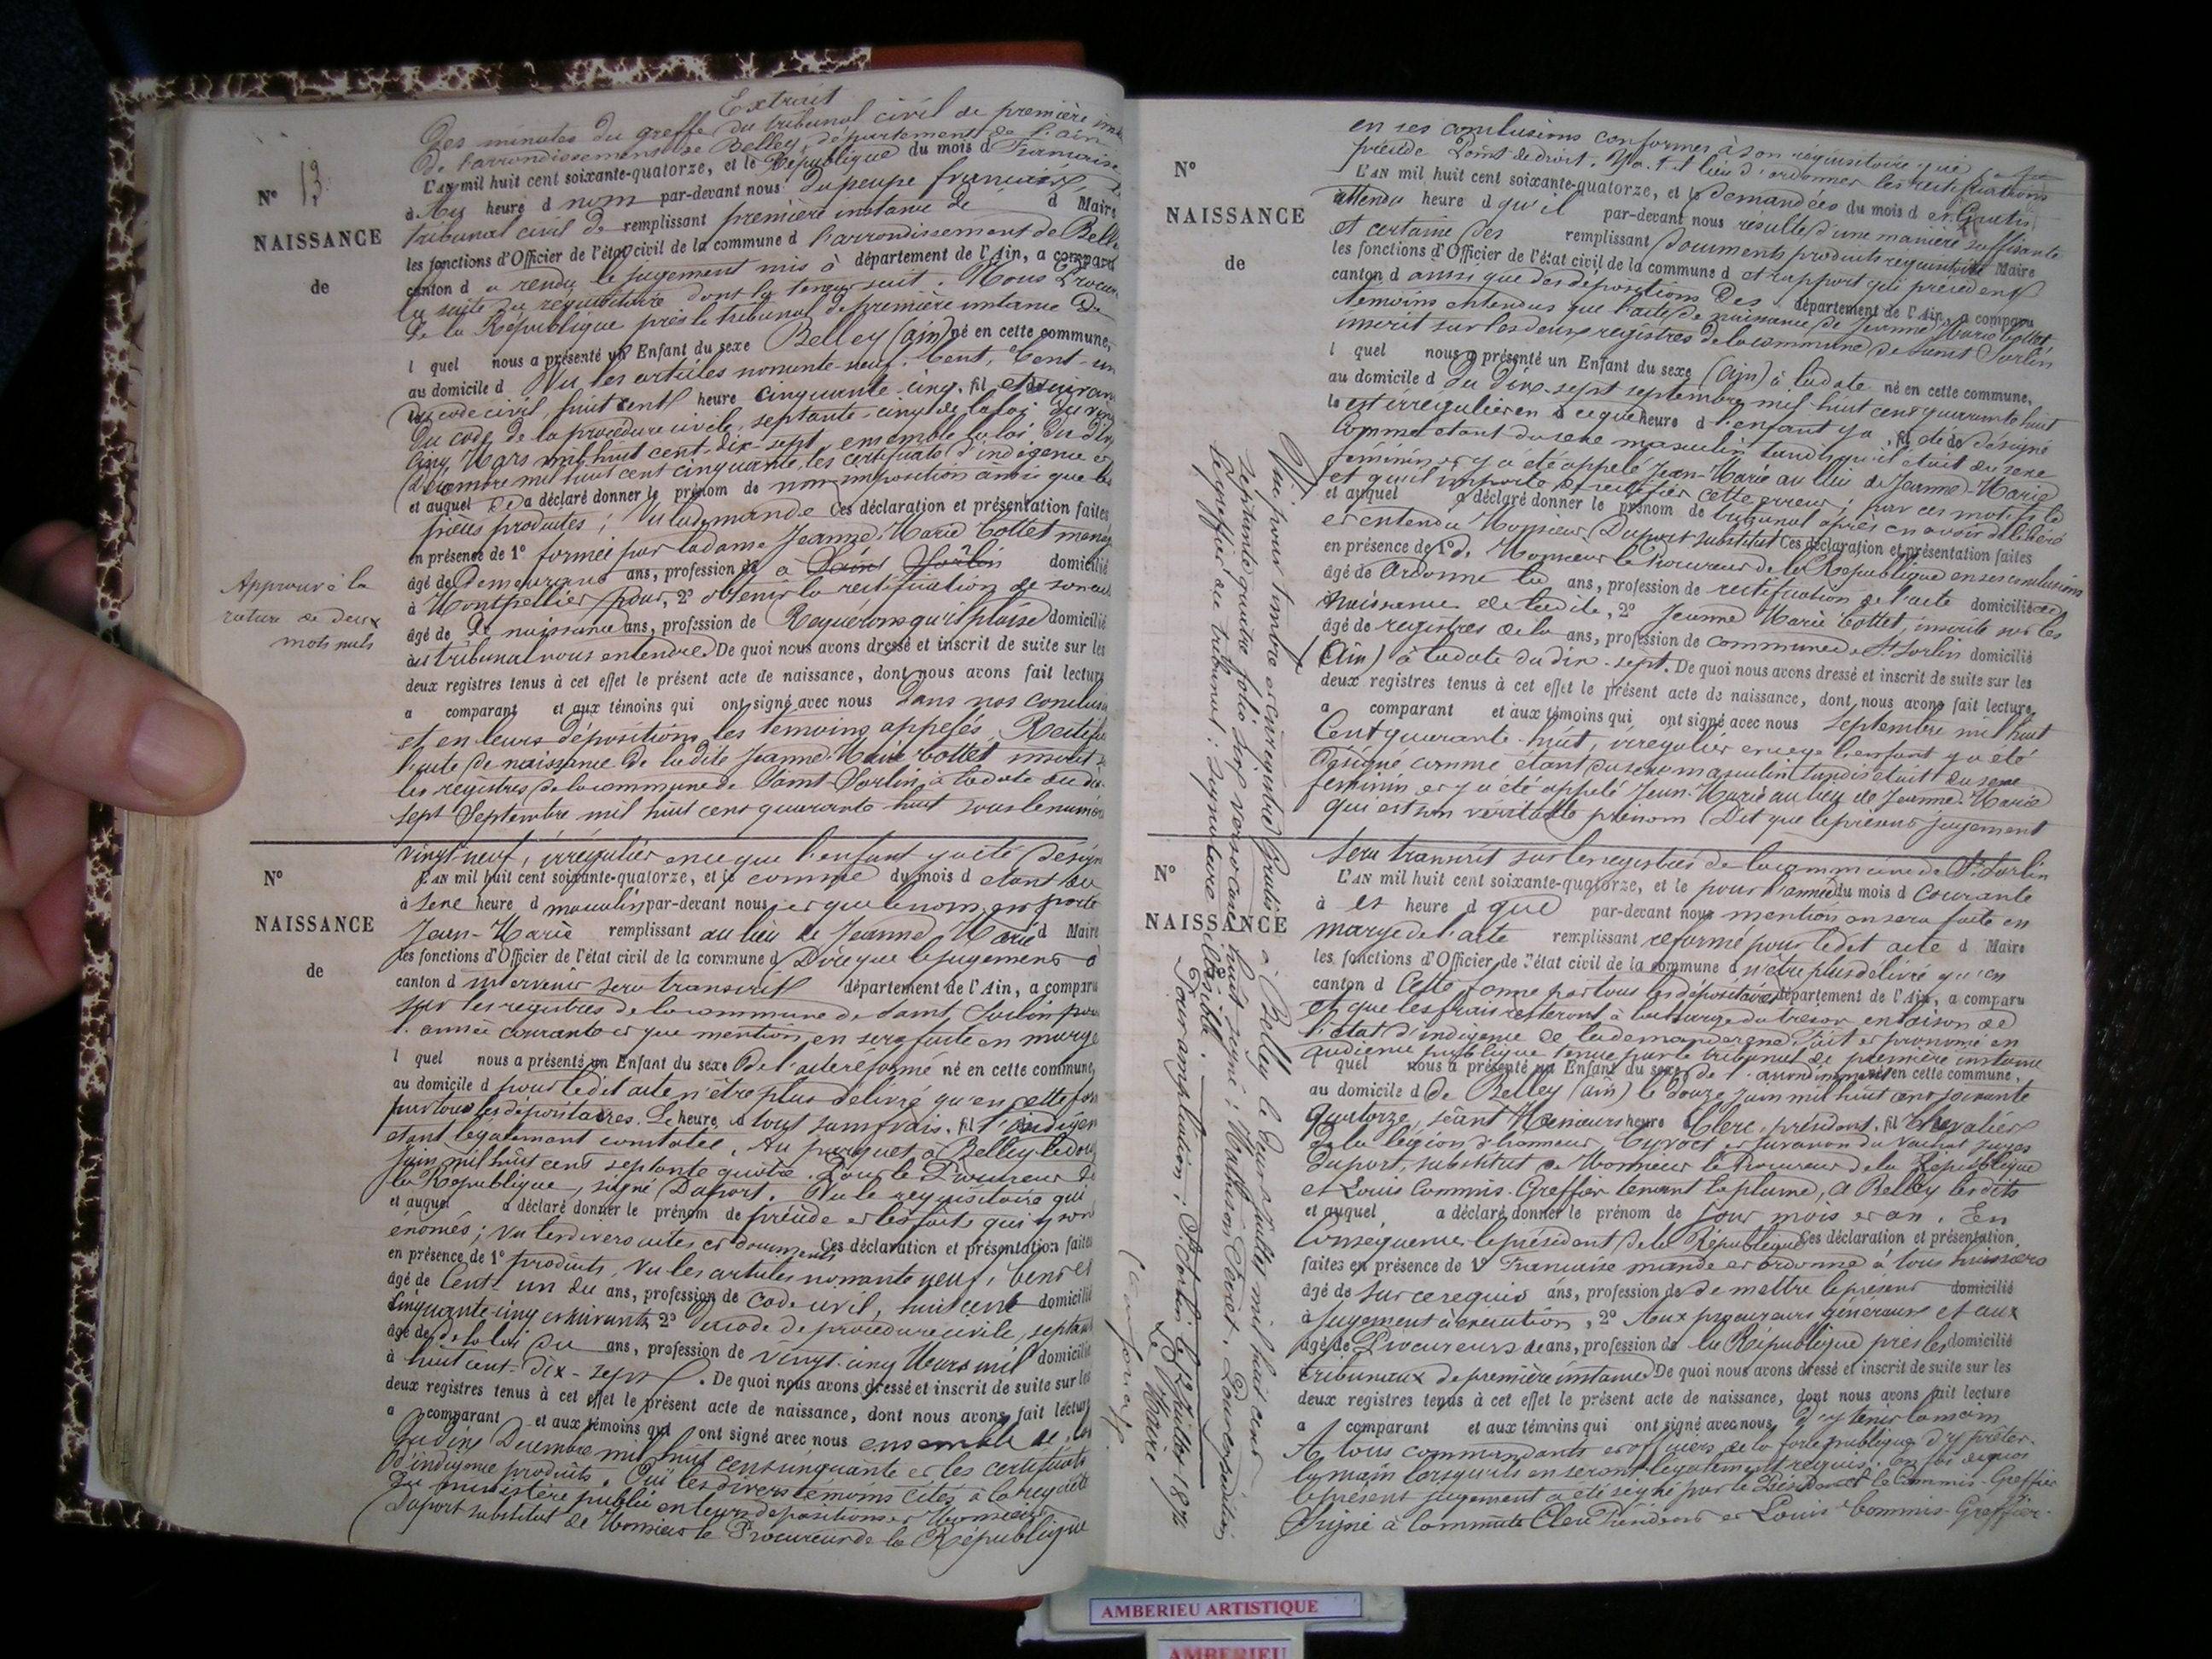 Extrait
Des minutes du greffe du tribunal civil de première
de l'arrondissement de Belley, département de l'ain
N° 13
L'AN mil huit cent soixante-quatorze, et le République du mois d Française
d heure d nom par-devant nous du peuple français
tribunal civil de remplissant première instance de d Maire
NAISSANCE
les fonctions d'Officier de l'état civil de la commune d l'arrondissement de Belle
de
canton d a rendu le jugement mis à département de l'Ain, a comparu
la suite du réquisitoire dont la teneur suit. Nous Procur
De la République près le tribunal de première instance De
Belley (ain) né en cette commune,
l quel nous a présenté un Enfant du sexe
au domicile d Vu les articles nonante-neuf, Cent, Cent-un
du code civil, huit cent heure cinquante-cinq, fil et suivan
du code de la procédure civile, septante-cinq de la loi du vingt
cinq Mars mil huit cent-dix-sept, ensemble la loi du dix
Décembre mil huit cent cinquante, les certificats d'indigence et
et auquel a déclaré donner le prénom de non-imposition ainsi que les
pièces produites; Vu la demande Ces déclaration et présentation faites
en présence de 1° formée par la dame Jeanne-Marie Cottet
âgé de Demeurant ans, profession de a Saint Sorlin domicilié
Approuvé la
rature de deux
mots nuls
à Montpellier pour, 2° obtenir la rectification de son
âgé de De naissance ans, profession de Requérons qu'il plaise domicilié
au tribunal nous entendre De quoi nous avons dressé et inscrit de suite sur les
deux registres tenus à cet effet le présent acte de naissance, dont nous avons fait lecture
a comparant et aux témoins qui ont signé avec nous dans nos conclusi
et en leurs dépositions les témoins appelés, Rectifi
l'acte de naissance de ladite Jeanne-Marie Cottet inscrit
les registres de la commune de Saint-Sorlin, à la date du dix
sept Septembre mil huit cent quarante-huit sous le numéro
vingt-neuf, irrégulier en ce que l'enfant y a été désign
N°
L'AN mil huit cent soixante-quatorze, et le comme du mois d étant du
à sexe heure d masculin par-devant nous et que le nom qu'il porte
NAISSANCE
Jean-Marie remplissant au lieu de Jeanne Marie d Maire
les fonctions d'Officier de l'état civil de la commune d Dire que le jugement à
de
canton d intervenir sera transcrit département de l'Ain, a comparu
sur les registres de la commune de Saint Sorlin pour
l'année courante et que mention en sera faite en marge
l quel nous a présenté un Enfant du sexe De l'acte réformé né en cette commune
au domicile d pour ledit acte n'être plus délivré qu'en cette for
par tous les dépositaires. Le heure d tout sans frais, fil l'indigen
étant légalement constatée. Au parquet à Belley le douze
juin mil huit cent septante quatre. Pour le Procureur de
la République, signé Duport. Vu le réquisitoire qui
et auquel a déclaré donner le prénom de précède et les faits qui y sont
énoncés; vu les divers actes et documents Ces déclaration et présentation faites
en présence de 1° produits, vu les articles nonante neuf, Cent et
âgé de Cent-un du ans, profession de code civil, huit cent domicilié
cinquante-cinq et suivants 2° du code de procédure civile, septan
âgé de de la loi du ans, profession de vingt-cinq Mars mil domicilié
à huit cent-dix-sept. De quoi nous avons dressé et inscrit de suite sur les
deux registres tenus à cet effet le présent acte de naissance, dont nous avons fait lecture
a comparant et aux témoins qui ont signé avec nous ensemble de la loi
du dix Décembre mil huit cent cinquante et les certificats
d'indigence produits. Ouï les divers témoins cités à la requête
du ministère public en leurs dépositions et Monsieur
Duport substitut de Monsieur le Procureur de la République
en ses conclusions conformes à son réquisitoire qui
précède Point de droit. Y a-t-il lieu d'ordonner les rectifications
N°
L'AN mil huit cent soixante-quatorze, et le demandées du mois d
attendu heure d qu'il par-devant nous résulte d'une manière suffisante
NAISSANCE
et certaine des remplissant documents produits réquisitoire Maire
les fonctions d'Officier de l'état civil de la commune d et rapport qui précèdent
de
canton d ainsi que des dépositions des département de l'Ain, a comparu
témoins entendus que l'acte de naissance de Jeanne Marie Cottet,
inscrit sur les deux registres de la commune de Saint Sorlin
l quel nous a présenté un Enfant du sexe (Ain) à la date né en cette commune,
au domicile d du dix-sept septembre mil huit cent quarante huit
le est irrégulier en ce que heure d l'enfant y a, fil été de désigné
comme étant du sexe masculin tandis qu'il était du sexe
féminin et y a été appelé Jean-Marie au lieu de Jeanne-Marie
et qu'il importe de rectifier cette erreur; par ces motifs le
et auquel a déclaré donner le prénom de tribunal après en avoir délibéré
et entendu Monsieur Duport substitut Ces déclaration et présentation faites
en présence de 1° de Monsieur le Procureur de la République en ses conclusions
âgé de Ordonne la ans, profession de rectification de l'acte domicilié de
naissance de ladite, 2° Jeanne Marie Cottet, inscrite sur les
âgé de registres de la ans, profession de commune de St Sorlin domicilié
(Ain) à la date du dix-sept. De quoi nous avons dressé et inscrit de suite sur les
deux registres tenus à cet effet le présent acte de naissance, dont nous avons fait lecture
a comparant et aux témoins qui ont signé avec nous Septembre mil huit
Cent quarante-huit, irrégulier en ce que l'enfant y a été
désigné comme étant du sexe masculin tandis était du sexe
féminin et y a été appelé Jean-Marie au lieu de Jeanne-Marie
qui est son véritable prénom Dit que le présent jugement
sera transcrit sur les registres de la commune de St Sorlin
N°
L'AN mil huit cent soixante-quatorze, et le pour l'année du mois d courante
à et heure d que par-devant nous mention en sera faite en
NAISSANCE
marge de l'acte remplissant réformé pour ledit acte d Maire
les fonctions d'Officier de l'état civil de la commune d n'être plus délivré qu'en
canton d cette forme par tous les dépositaires département de l'Ain, a comparu
et que les frais resteront à la charge du trésor en raison de
l'état d'indigence de la demanderesse Fait et prononcé en
audience publique tenue par le tribunal de première instance
l quel nous a présenté un Enfant du sexe de l'arrondissement né en cette commune,
au domicile d de Belley (ain) le douze juin mil huit cent soixante
quatorze, séant Messieurs heure Clerc, président, fil Chevalier
de la légion d'honneur, Cyvoct et juges
Duport, substitut de Monsieur le Procureur de la République
et Louis Commis-Greffier tenant la plume, à Belley lesdits
et auquel a déclaré donner le prénom de jour mois et an. En
Conséquence le président de la République Ces déclaration et présentation
faites en présence de 1° Française mande et ordonne à tous huissiers
âgé de sur ce requis ans, profession de de mettre le présent domicilié
à jugement à exécution, 2° Aux procureurs généraux et aux
âgé de Procureurs de ans, profession de la République près les domicilié
tribunaux de première instance De quoi nous avons dressé et inscrit de suite sur les
deux registres tenus à cet effet le présent acte de naissance, dont nous avons fait lecture
a comparant et aux témoins qui ont signé avec nous d'y tenir la main
A tous commandants et officiers de la force publique d'y prêter
la main lorsqu'ils en seront légalement requis. En foi de quoi
le présent jugement a été signé par le Président et le Commis-Greffier
Signé à la minute Clerc Président et Louis Commis-Greffier.
Visé pour timbre et enregistré Gratis à Belley le deux Juillet mil huit cent
septante quatre folio cinq verso case huit signé: Pour expédition
Le greffier du tribunal: signature illisible.
Pour ampliation; St Sorlin le 12 Juillet 1874
Le Maire
AMBERIEU ARTISTIQUE
AMBERIEU